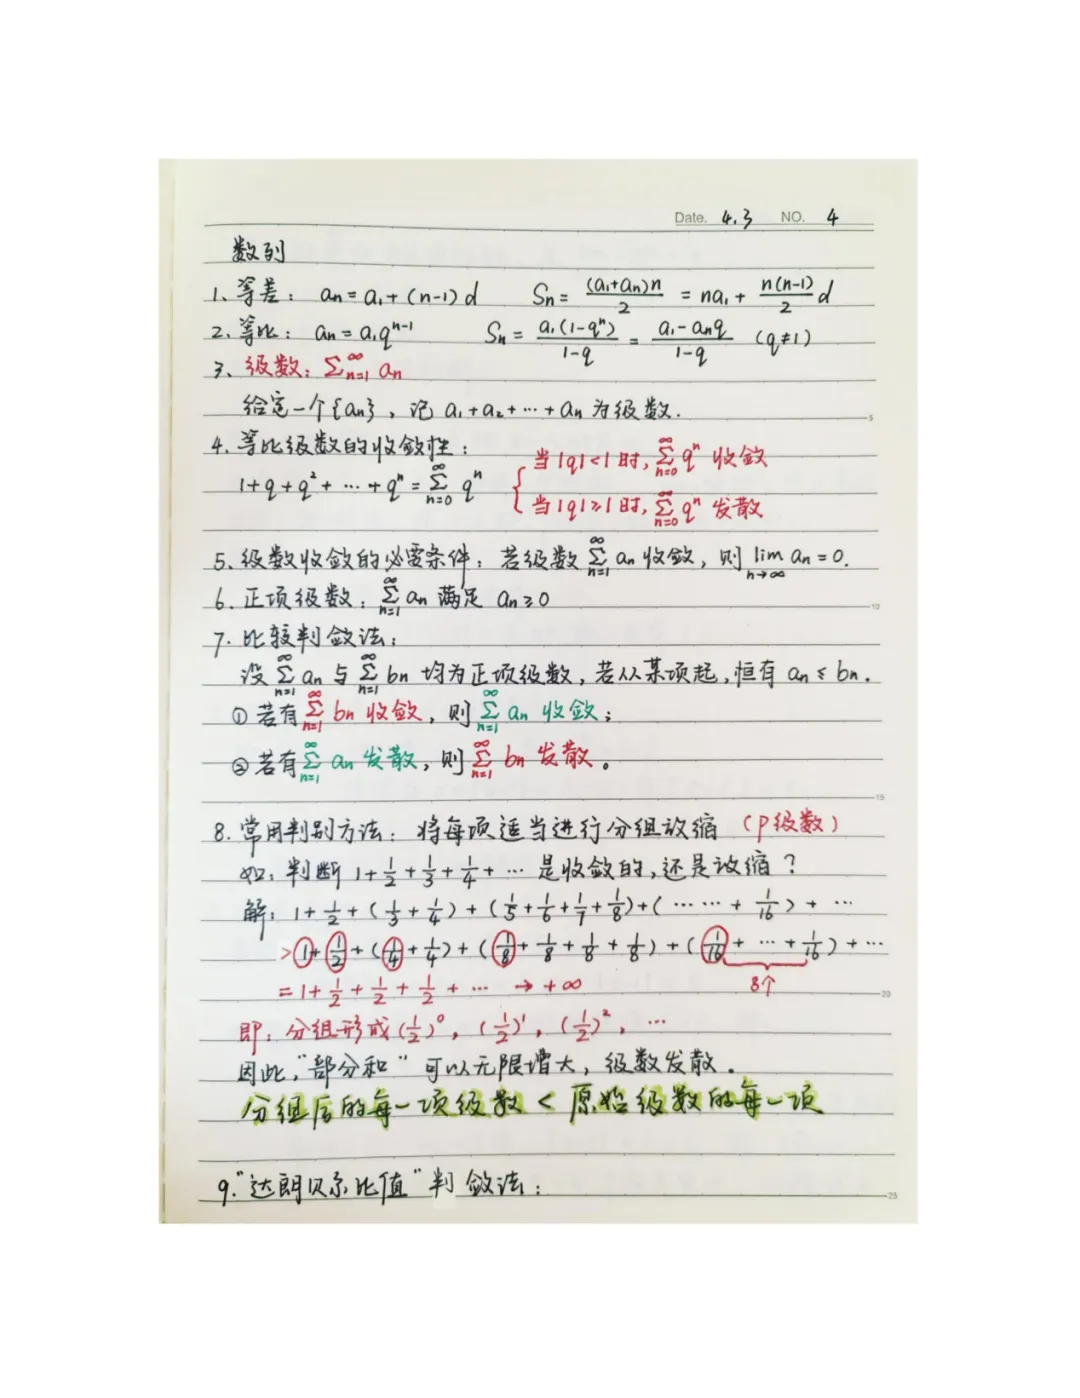 Date. 4.3 NO. 4
数列
1、等差： an=a₁+(n-1)d Sn= (a₁+an)n/2 = na₁+ n(n-1)/2 d
2、等比： an=a₁qⁿ⁻¹ Sn= a₁(1-qⁿ)/1-q = a₁-anq/1-q (q≠1)
3、级数：∑_{n=1}^{∞} an
给定一个{an}，记 a₁+a₂+…+an 为级数.
5
4、等比级数的收敛性：
当|q|<1时，∑_{n=0}^{∞} qⁿ 收敛
1+q+q²+…+qⁿ=∑_{n=0}^{∞} qⁿ
当|q|≥1时，∑_{n=0}^{∞} qⁿ 发散
5、级数收敛的必要条件：若级数 ∑_{n=1}^{∞} an 收敛，则 lim_{n→∞} an=0.
6、正项级数：∑_{n=1}^{∞} an 满足 an≥0
10
7、比较判敛法：
设 ∑_{n=1}^{∞} an 与 ∑_{n=1}^{∞} bn 均为正项级数，若从某项起，恒有 an≤bn.
①若有 ∑_{n=1}^{∞} bn 收敛，则 ∑_{n=1}^{∞} an 收敛；
②若有 ∑_{n=1}^{∞} an 发散，则 ∑_{n=1}^{∞} bn 发散。
15
8、常用判别方法：将每项适当进行分组放缩（P级数）
如：判断 1+1/2+1/3+1/4+… 是收敛的，还是放缩？
解：1+1/2+(1/3+1/4)+(1/5+1/6+1/7+1/8)+(……+1/16)+…
>1+1/2+(1/4+1/4)+(1/8+1/8+1/8+1/8)+(1/16+…+1/16)+…
=1+1/2+1/2+1/2+… → +∞ 8个
20
即：分组形成(1/2)⁰，(1/2)¹，(1/2)²，…
因此，"部分和"可以无限增大，级数发散。
分组后的每一项级数 < 原始级数的每一项
9."达朗贝尔比值"判敛法：
25